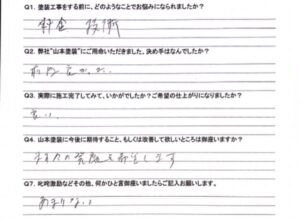 Q1. 塗装工事をする前に、どのようなことでお悩みになられましたか？
料金 技術
Q2. 弊社"山本塗装"にご用命いただきました。決め手はなんでしたか？
Q3. 実際に施工完了してみて、いかがでしたか？ご希望の仕上がりになりましたか？
良い
Q4. 山本塗装に今後に期待すること、もしくは改善して欲しいところは御座いますか？
Q7. 叱咤激励などその他、何かひと言御座いましたらご記入お願いします。
あまりない